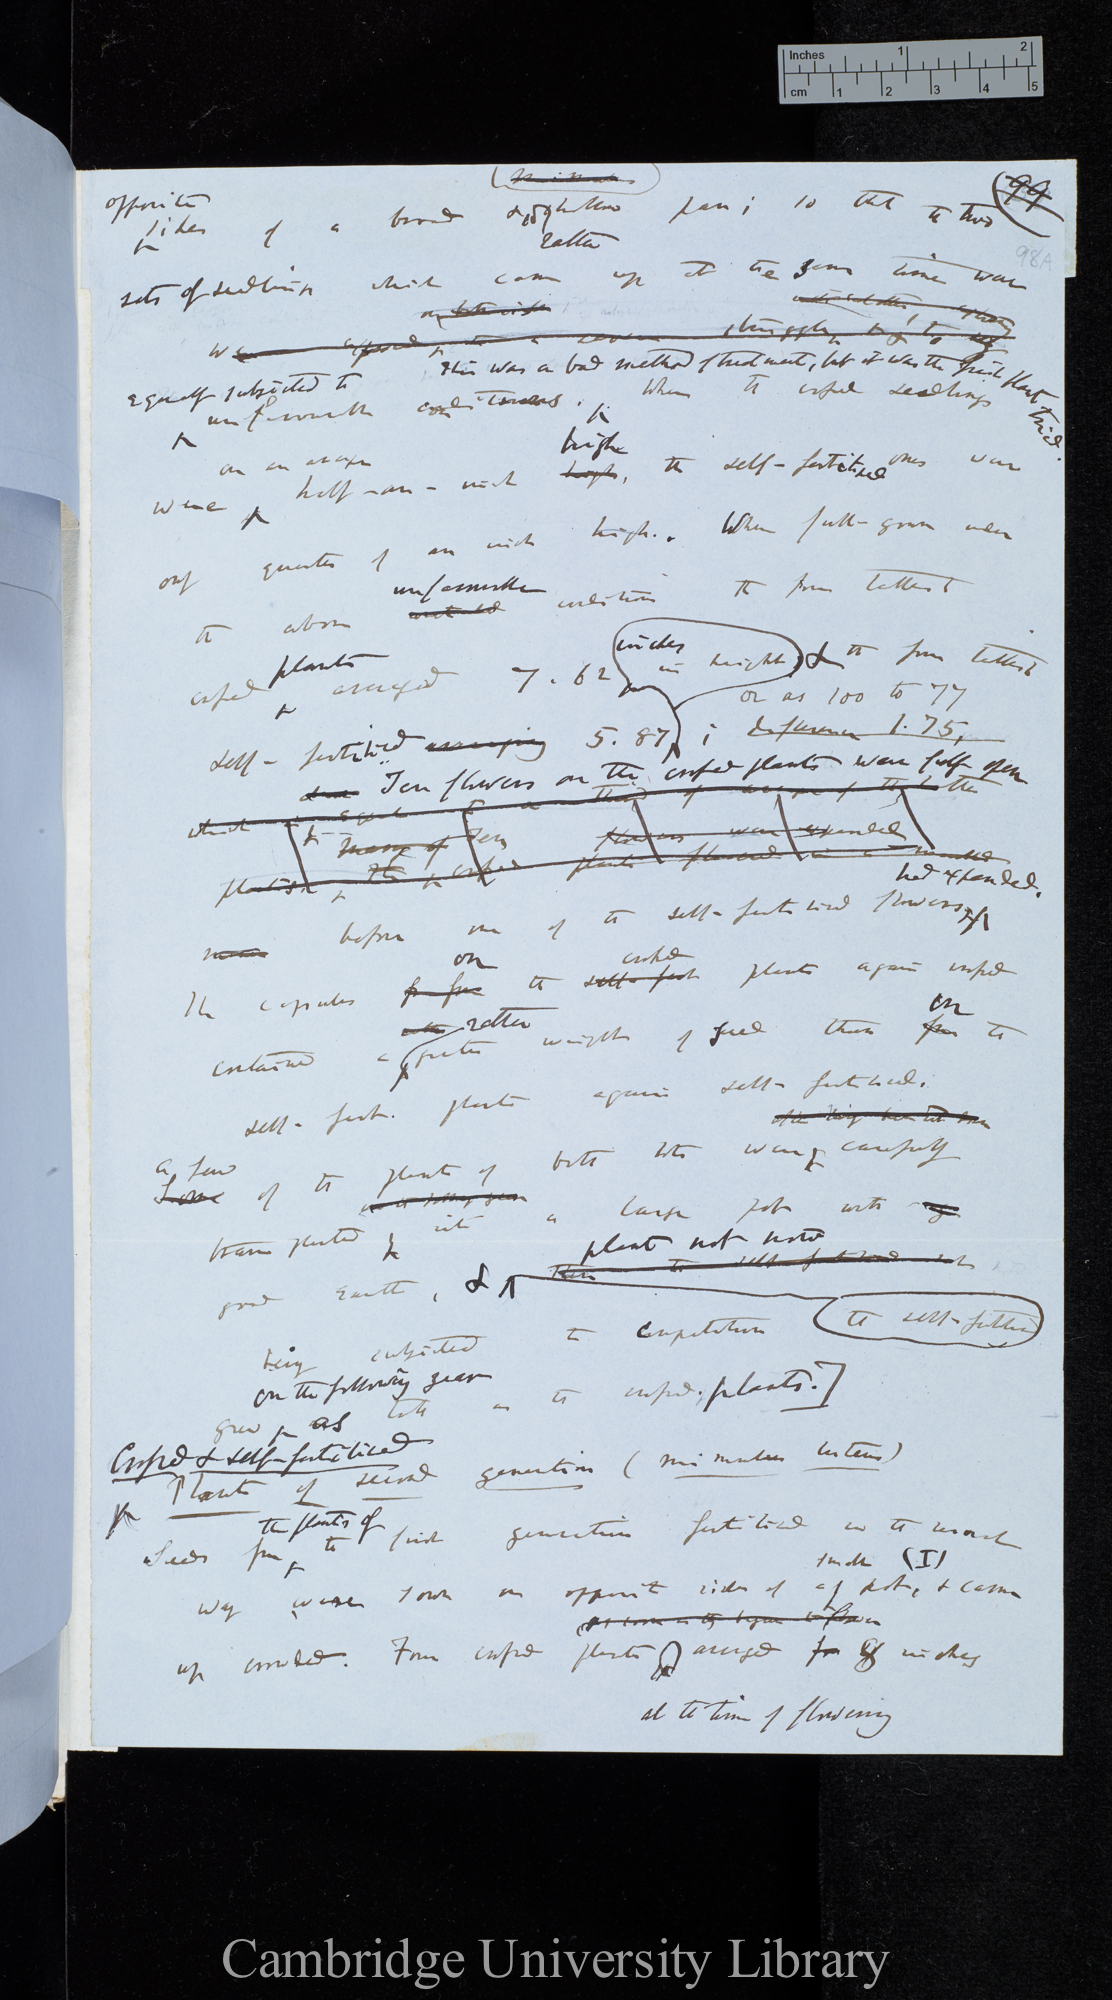 Inches 1 2
cm 1 2 3 4 5
(mimulus)
99
98A
opposite
sides of a broad & shallow pan; so that the two
rather
sets of seedlings which came up at the same time were
we
This was a bad method of treatment, but it was the first plant tried.
equally subjected to
unfavourable conditions. When the crossed seedlings
on an average high
were half-an-inch high, the self-fertilised ones were
only quarter of an inch high. When full-grown under
unfavourable
the above conditions the four tallest
plants inches
crossed averaged 7.62 in height, & the four tallest
or as 100 to 77
self-fertilised averaging 5.87; difference 1.75,
Ten flowers on the crossed plants were fully open
which
many of ten flowers were expanded
plants crossed plants flowered
had expanded.
before one of the self-fertilised flowers
on crossed
The capsules from the self-fert plants again crossed
rather on
contained a greater weight of seed than from the
self-fert. plants again self-fertilised.
a few
Some of the plants of both lots were carefully
transplanted into a large pot with
plants not now
good earth, &
the self-fertilised
being subjected to competition
on the following year
grew as tall as the crossed plants.]
Crossed & self-fertilised
Plants of second generation (mimulus luteus)
the plants of
Seeds from the first generation fertilised in the usual
small (I)
way were sown on opposite sides of a pot, & came
as soon as they began to flower
up crowded. Four crossed plants averaged 8 inches
at the time of flowering
Cambridge University Library